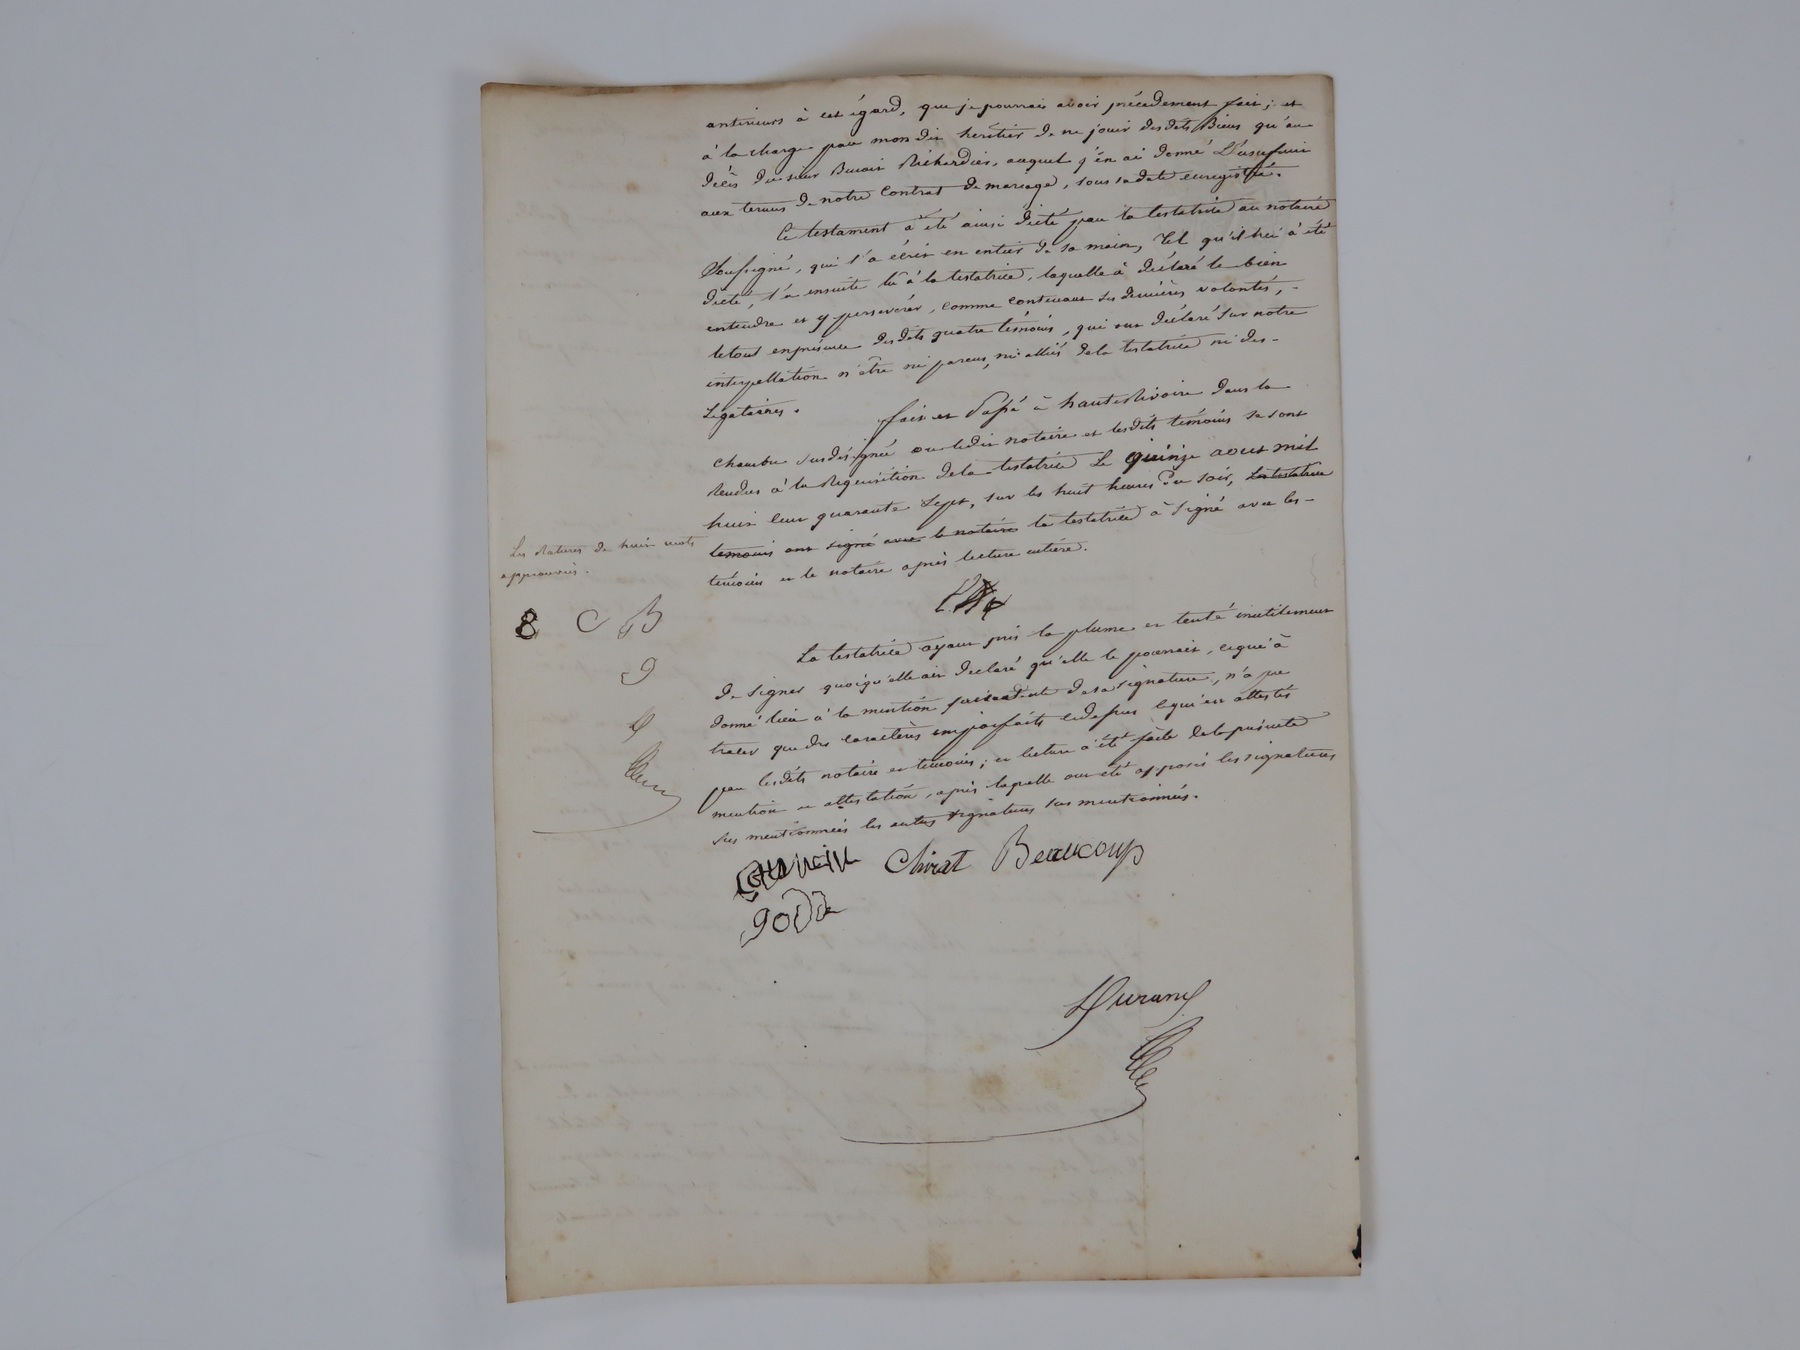 antérieurs à cet égard, que je pourrais avoir précédement fait ; et
à la charge par mon dit heritier de ne jouir desdits Biens qu'au
décès du sieur Richardier, auquel j'en ai donné L'usufruit
aux termes de notre Contrat de mariage, sous sa date enregistré.
Ce testament a été ainsi dicté par la testatrice au notaire
Soussigné, qui l'a écrit en entier de sa main, tel qu'il lui à été
dicté, l'a ensuite lu à la testatrice, laquelle à déclaré le bien
entendre et y perseverer, comme contenant ses dernières volontés,
le tout en présence desdits quatre témoins, qui ont déclaré sur notre
interpellation n'être ni parens, ni alliés de la testatrice ni des
Légataires.
fait et Passé à hauterivoire dans la
chambre susdésignée ou ledit notaire et lesdits témoins se sont
Rendus à la Réquisition de la testatrice Le quinze aout mil
huit cent quarante Sept, sur les huit heures du soir, La testatrice
temoins ont signé avec le notaire la testatrice à signé avec les
témoins et le notaire après lecture entière.
Les Ratures de huit mots
approuvées.
8 C B
g
La testatrice ayant pris la plume et tenté inutilement
de signer quoiqu'elle ait déclaré qu'elle le pourrait, ce qui à
donné lieu à la mention de sa signature, n'a pu
tracer que des caractères imparfaits ci dessus ce qui est attesté
par lesdits notaire et temoins ; et lecture à été faite de la présente
mention et attestation, après laquelle ont été apposés les signatures
sus mentionnées les autres signatures sus mentionnées.
Chirat Beaucoup
godde
Durand